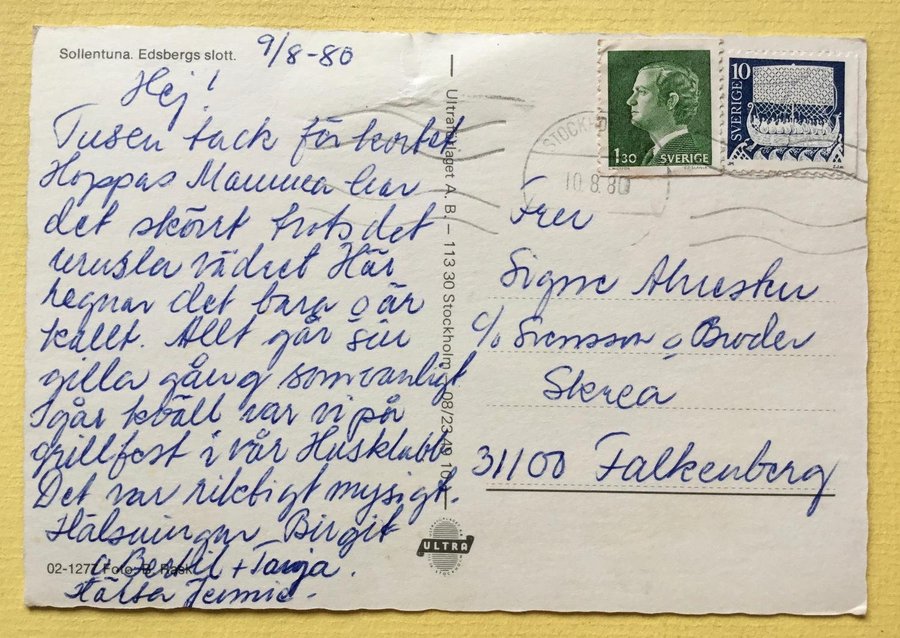 Sollentuna. Edsbergs slott.
9/8-80
Hej!
Tusen tack för kortet
Hoppas Mamma har
det skönt trots det
urusla vädret Här
regnar det bara o är
kallt. Allt går sin
gilla gång som vanligt
Igår kväll var vi på
grillfest i vår Husklubb
Det var riktigt mysigt.
Hälsningar Birgit
o Bertil + Tanja.
Hälsa
02-1277 Foto: B. Rask
Ultraförlaget A. B. – 113 30 Stockholm 08/23 49 10
ULTRA
1.30 SVERIGE
SVERIGE 10
STOCKHOLM
10.8.80
Fru
Signe
c/o Svensson o Broder
Skrea
31100 Falkenberg